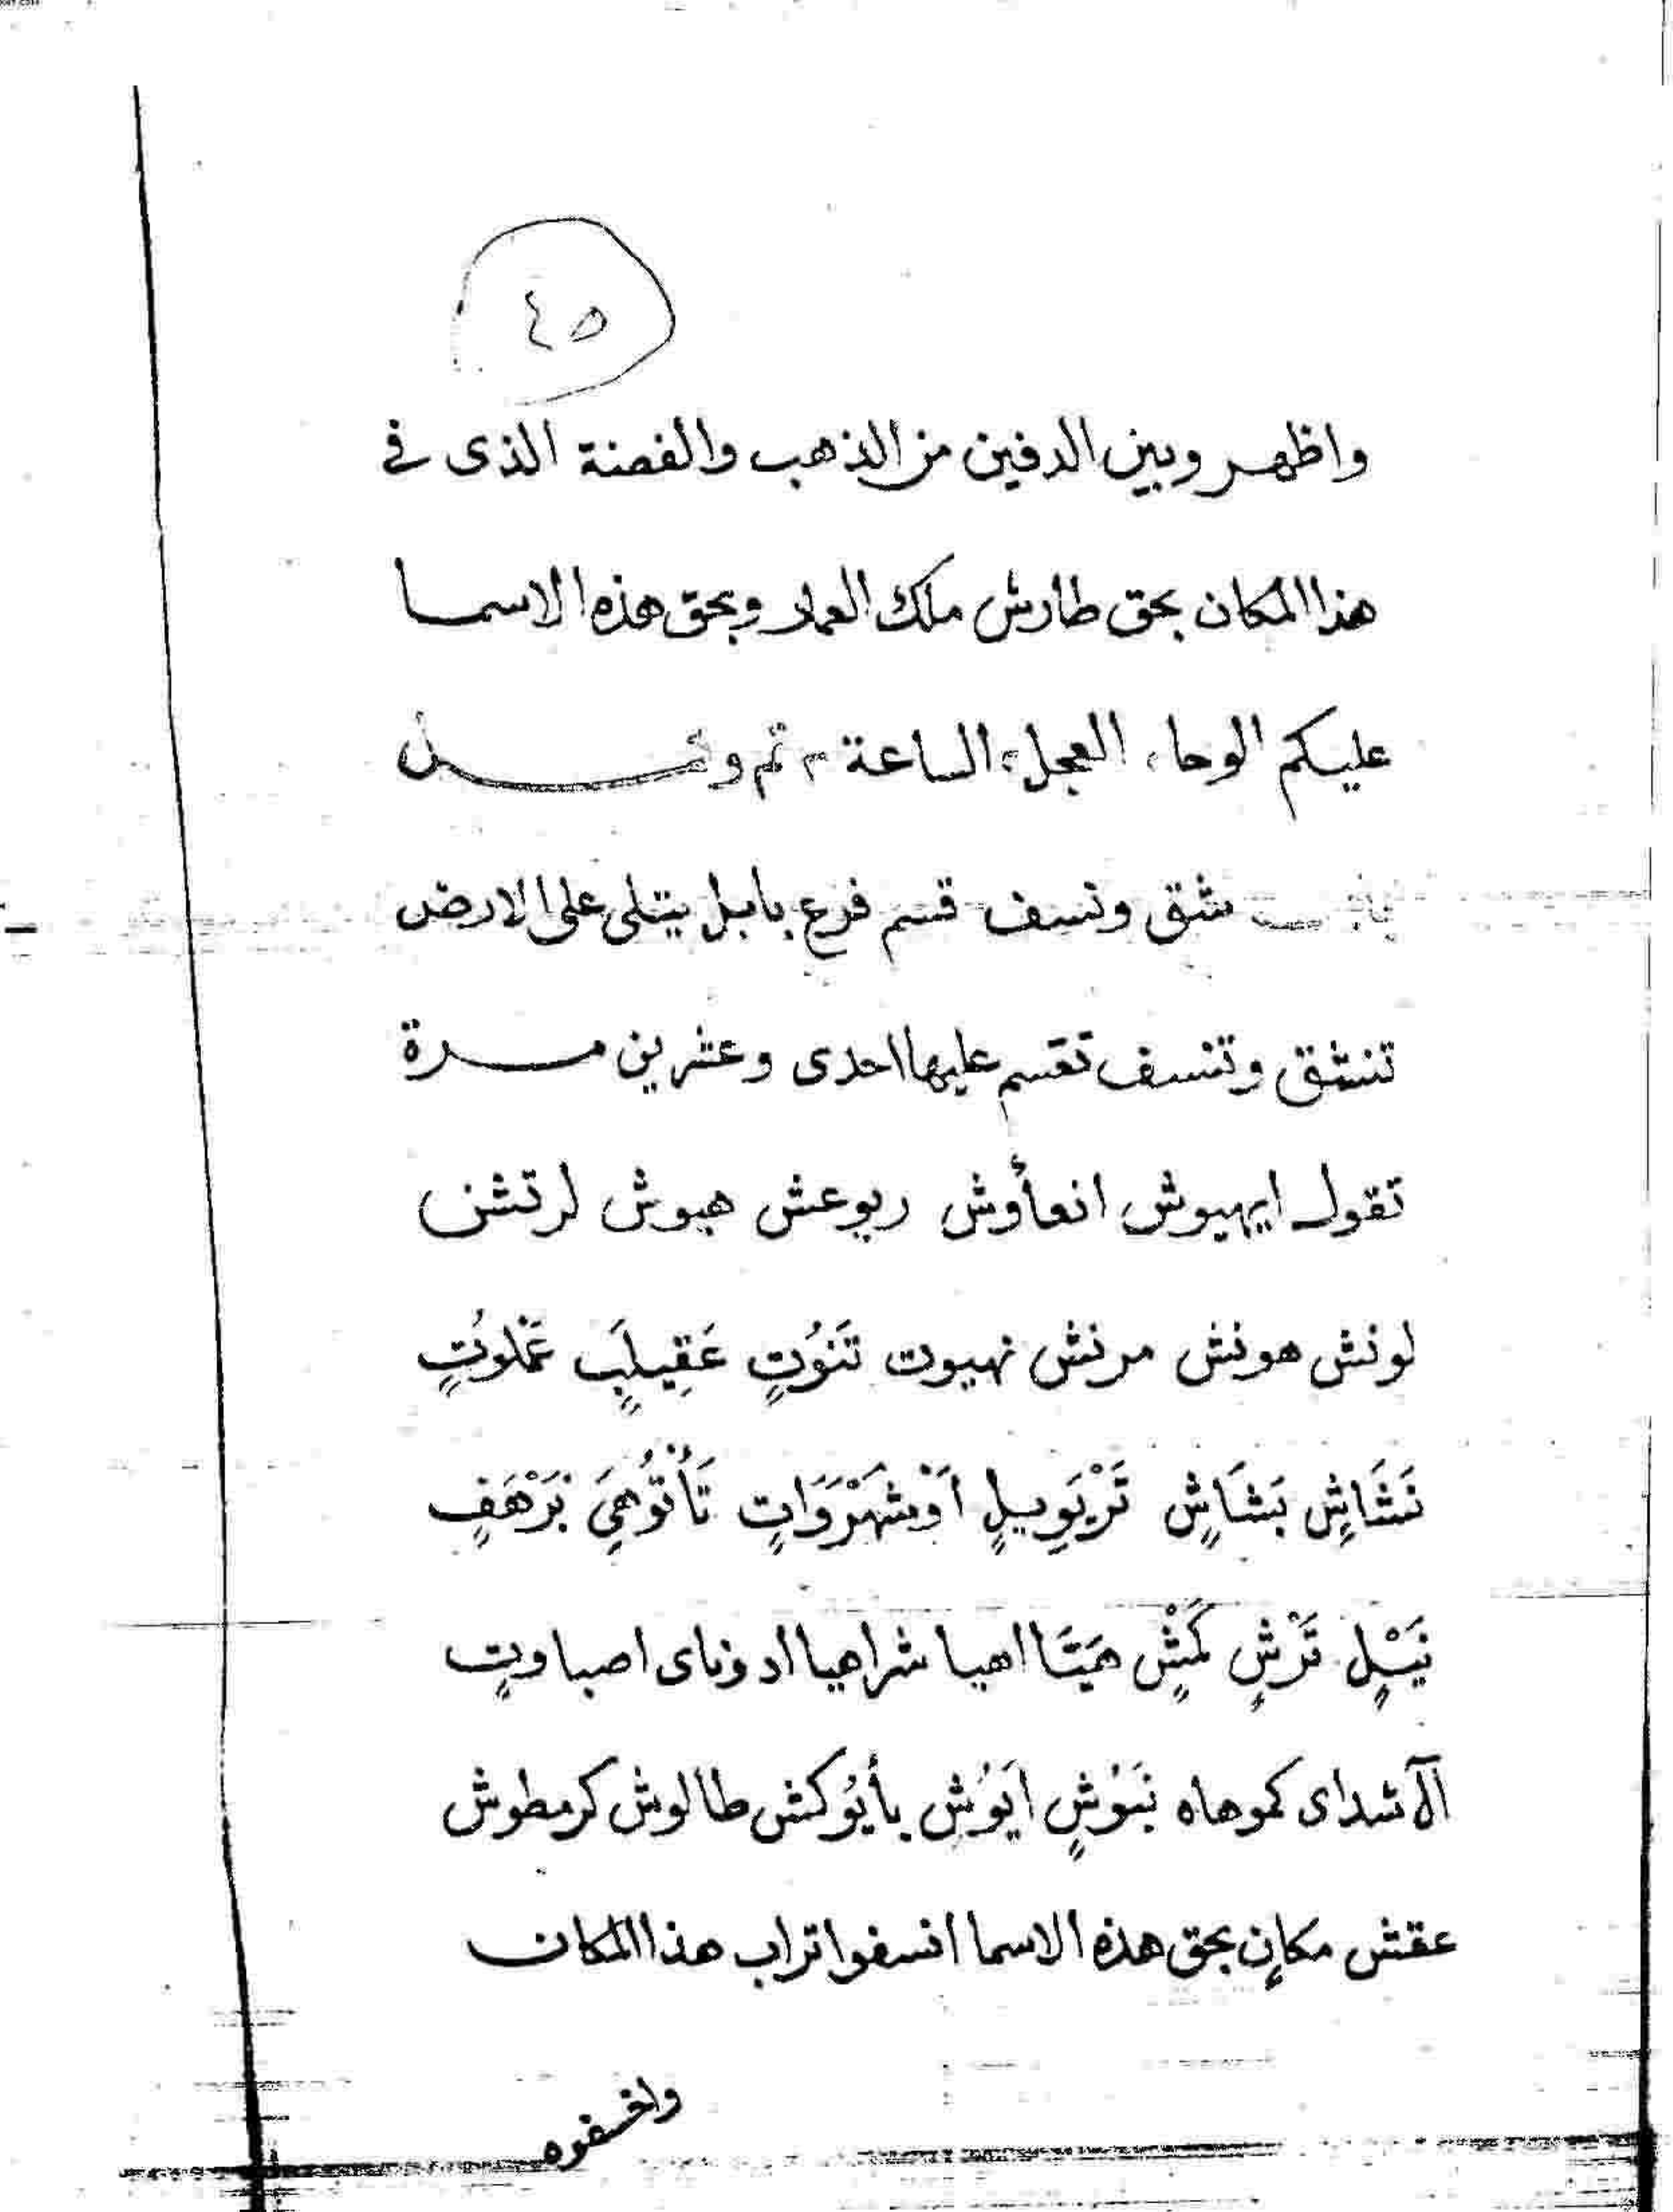 ٤٥
واظهر وبين الدفين من الذهب والفضة الذى فى
هذا المكان بحق طارش ملك العمار وبحق هذه الاسما
عليكم الوحا، العجل، الساعة ٢ تم و
شق ونسف قسم فرع بابل يتلى على الارض
تنشق وتنسف تقسم عليها احدى وعشرين مرة
تقول ايهيوش انعأوش ريوعش هيوش لرتشن
لونش هونش مرنش نهيوت تَنوُتٍ عَقِيلَبٍ
نَشَاشٍ بَشَاشٍ تَرْيَوِيلٍ اَوْشَهْرَوَاتٍ تَأتُوُهِىَ بَرْهَفٍ
نَيْلٍ تَرْشٍ كَمَشٍ هَيَتَا اهيا شراهيا ادوناى اصباوتٍ
آل شداى كموهاه نَبَوُشٍ اَيَوُشٍ بأيُوكش طالوش كرمطوش
عقش مكانٍ بحق هذه الاسما انسفوا تراب هذا المكان
واخسفوه